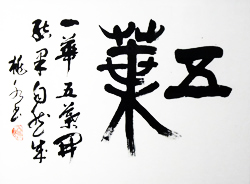 五葉
一華五葉開
結果自然成